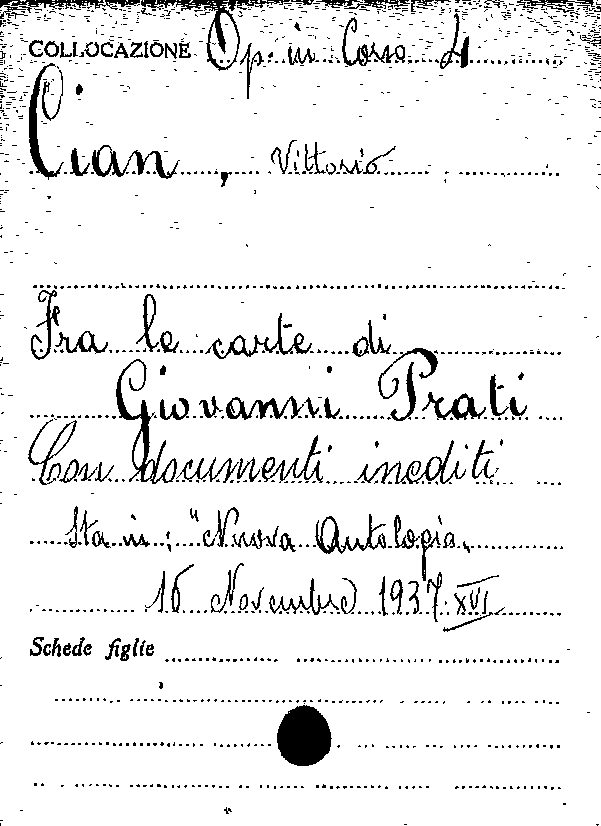 COLLOCAZIONE Op. in Corso 4
Cian, Vittorio
Fra le carte di
Giovanni Prati
Con documenti inediti
Sta in: "Nuova Antologia„
16 Novembre 1937. XVI
Schede figlie